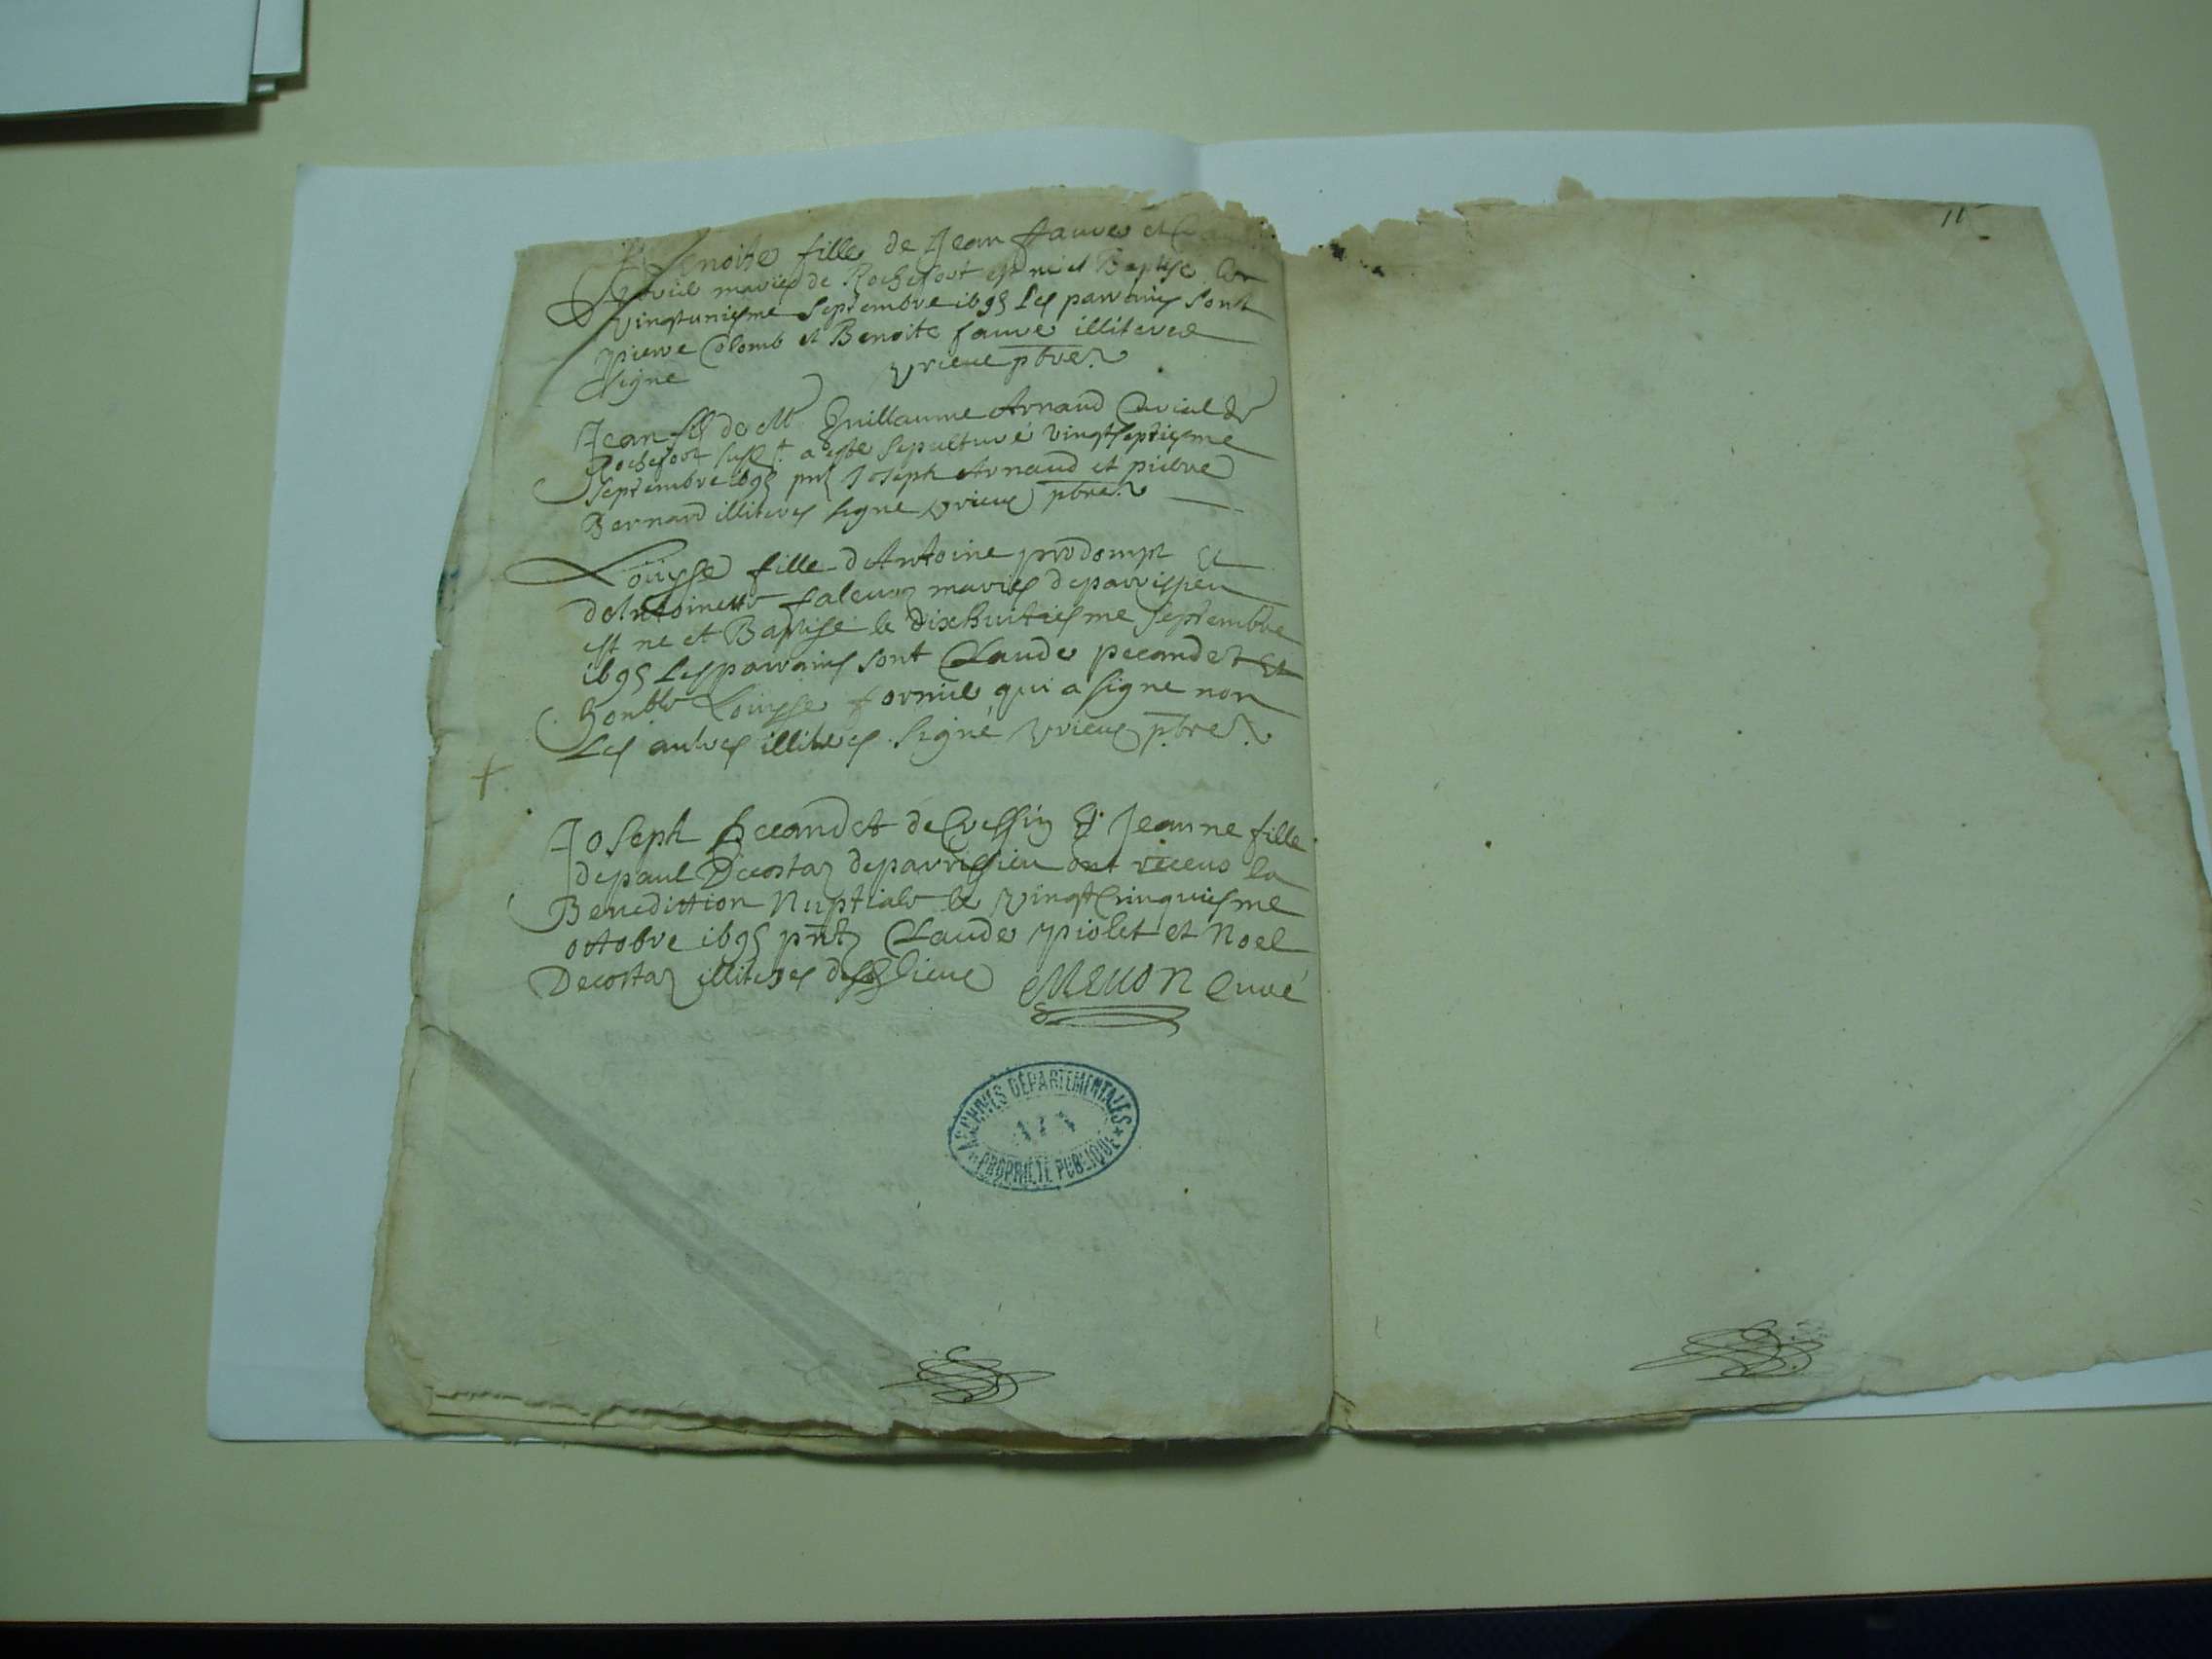 Benoite fille de Jean fauve et
mariés de Rochefort est né et Baptisé le
vingtuniesme septembre 1695 Les parrains sont
pierre Colomb et Benoite fauve illiterés
signe vrieue pbre
Jean fils de Mr Guillaume Arnaud de
Rochefort a esté sepulturé vingtseptiesme
septembre 1695 pnts Joseph Arnaud et pierre
Bernard illiteres signe vrieue pbre
Louysse fille d'Antoine prodompt Et
d'Antoinette mariés de parrissieu
est ne et Baptisé le dixhuitiesme septembre
1695 Les parrains sont Claude pecandet Et
honble Louysse fornier qui a signe non
Les autres illiteres signé vrieue pbre
Joseph pecandet de Cressin Et Jeanne fille
de paul Decostaz de parrissieu ont receus la
Benediction Nuptiale le vingtcinquiesme
octobre 1695 pnts Claude piolet et Noel
Decostaz illiteres Curé
ARCHIVES DÉPARTEMENTALES
AIN
PROPRIÉTÉ PUBLIQUE
11